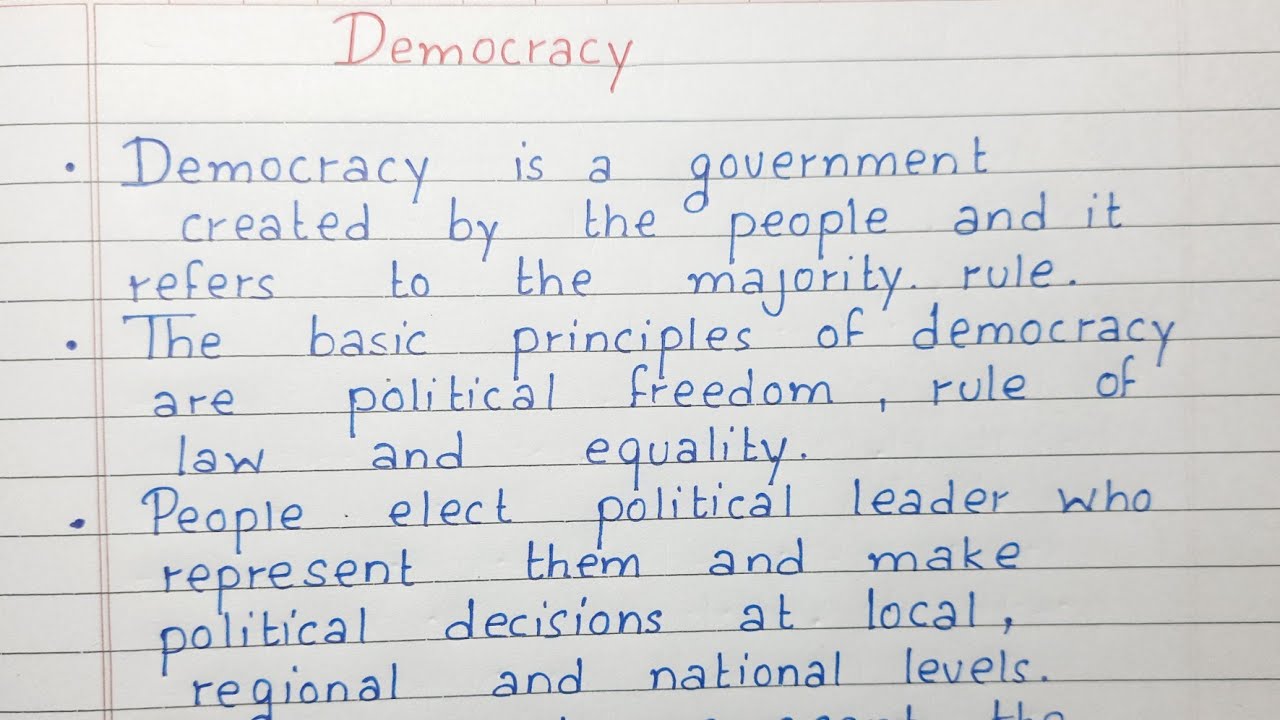 Democracy
• Democracy is a government
created by the people and it
refers to the majority. rule.
• The basic principles of democracy
are political freedom, rule of
law and equality.
• People elect political leader who
represent them and make
political decisions at local,
regional and national levels.
the